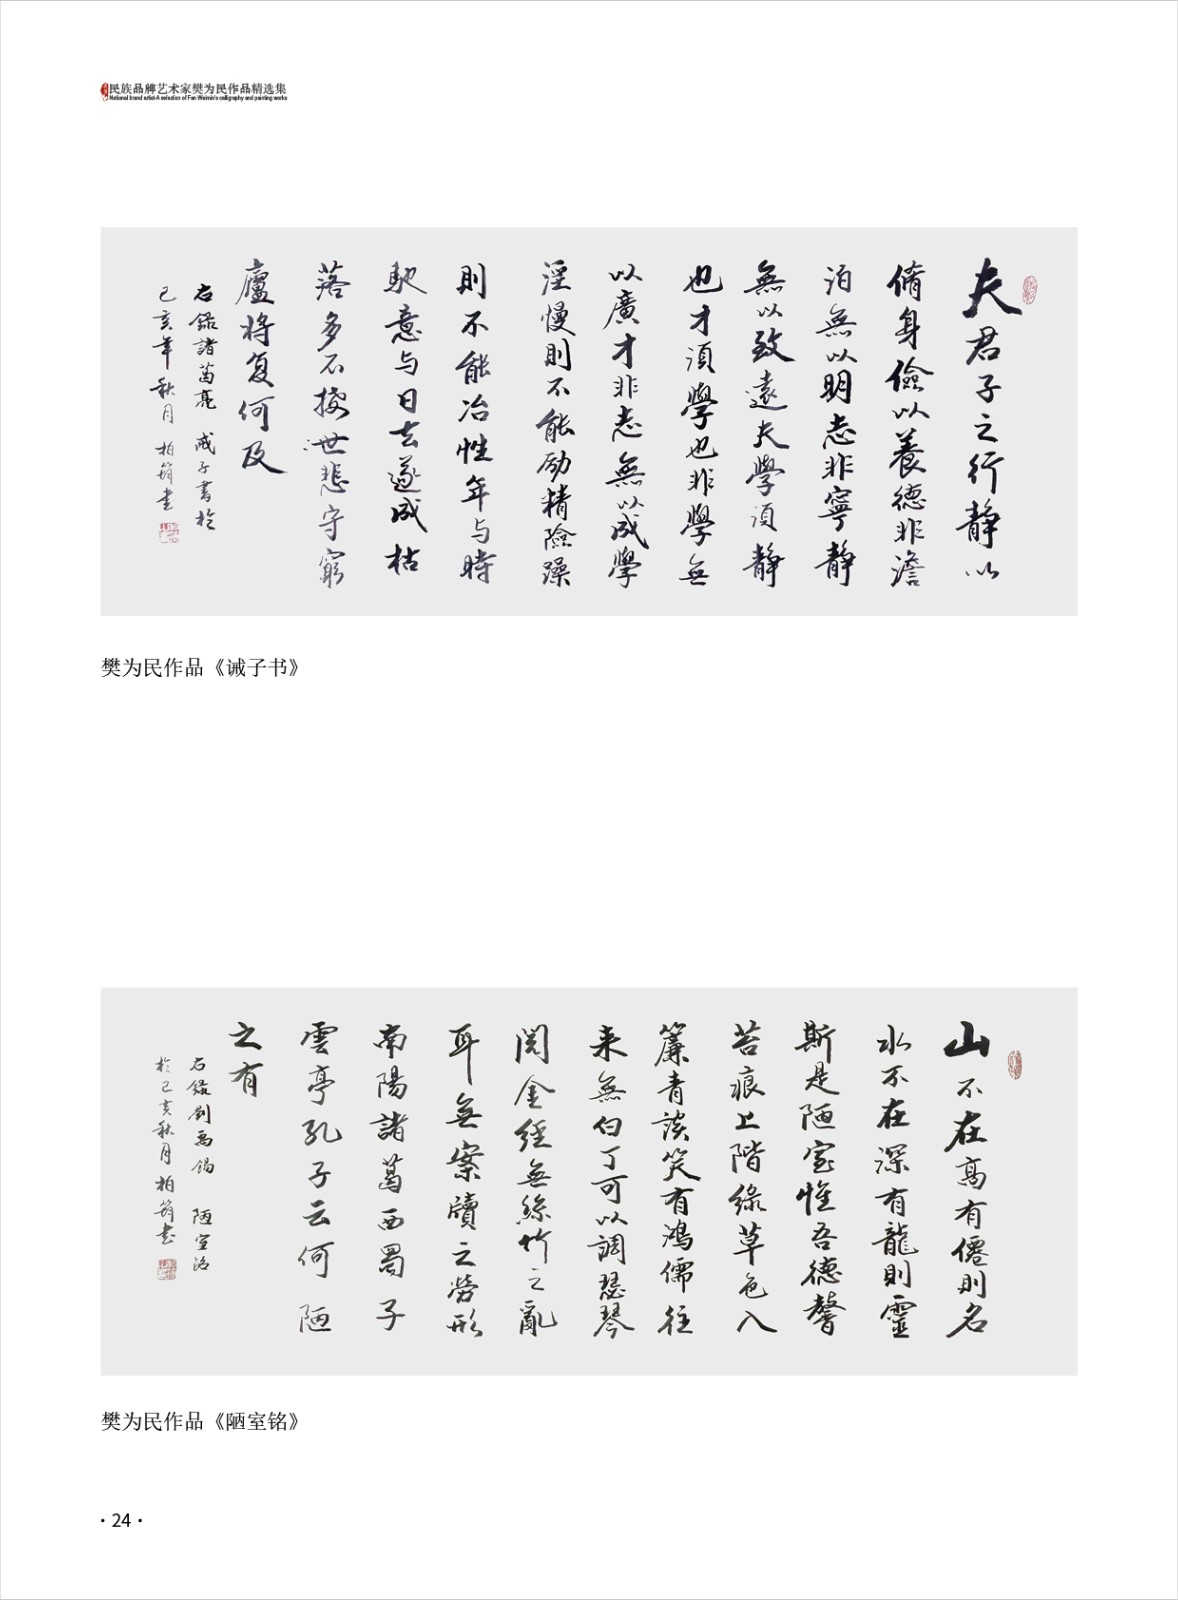 民族品牌艺术家樊为民作品精选集
National brand artist-A selection of Fan Weimin's calligraphy and painting works
夫君子之行静以
脩身儉以養德非澹
泊無以明志非寧静
無以致遠夫學須静
也才須學也非學無
以廣才非志無以成學
淫慢則不能励精險躁
則不能冶性年与時
馳意与日去遂成枯
落多不接世悲守窮
廬将复何及
右錄諸葛亮 誡子書於
己亥年秋月 柏筠書
樊为民作品《诫子书》
山不在高有僊則名
水不在深有龍則靈
斯是陋室惟吾德馨
苔痕上階綠草色入
簾青談笑有鴻儒往
来無白丁可以調瑟琴
閲金經無絲竹之亂
耳無案牘之勞形
南陽諸葛西蜀子
雲亭孔子云何陋
之有
右錄劉禹锡 陋室铭
於己亥秋月 柏筠書
樊为民作品《陋室铭》
·24·